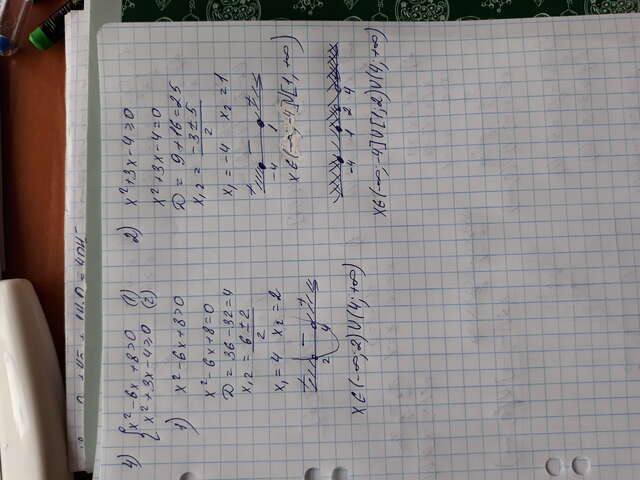 4) { x² - 6x + 8 > 0 (1)
x² + 3x - 4 ≥ 0 (2)
1) x² - 6x + 8 > 0
x² - 6x + 8 = 0
D = 36 - 32 = 4
x1,2 = (6 ± 2)/2
x₁ = 4 x₂ = 2
+ - +
2 4
x ∈ (-∞; 2) ∪ (4; +∞)
2) x² + 3x - 4 ≥ 0
x² + 3x - 4 = 0
D = 9 + 16 = 25
x1,2 = (-3 ± 5)/2
x₁ = -4 x₂ = 1
+ - +
-4 1
x ∈ (-∞; -4] ∪ [1, +∞)
-4 1 2 4
x ∈ (-∞; -4] ∪ [1, 2) ∪ (4; +∞)